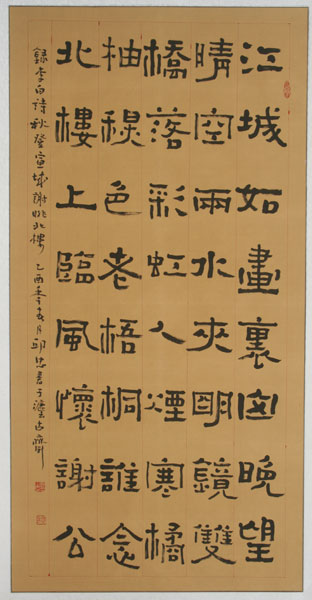 江城如畫裏山晚望
晴空兩水夾明鏡雙
橋落彩虹人煙寒橘
柚秋色老梧桐誰念
北樓上臨風懷謝公
錄李白詩秋登宣城謝朓北樓 乙酉年月